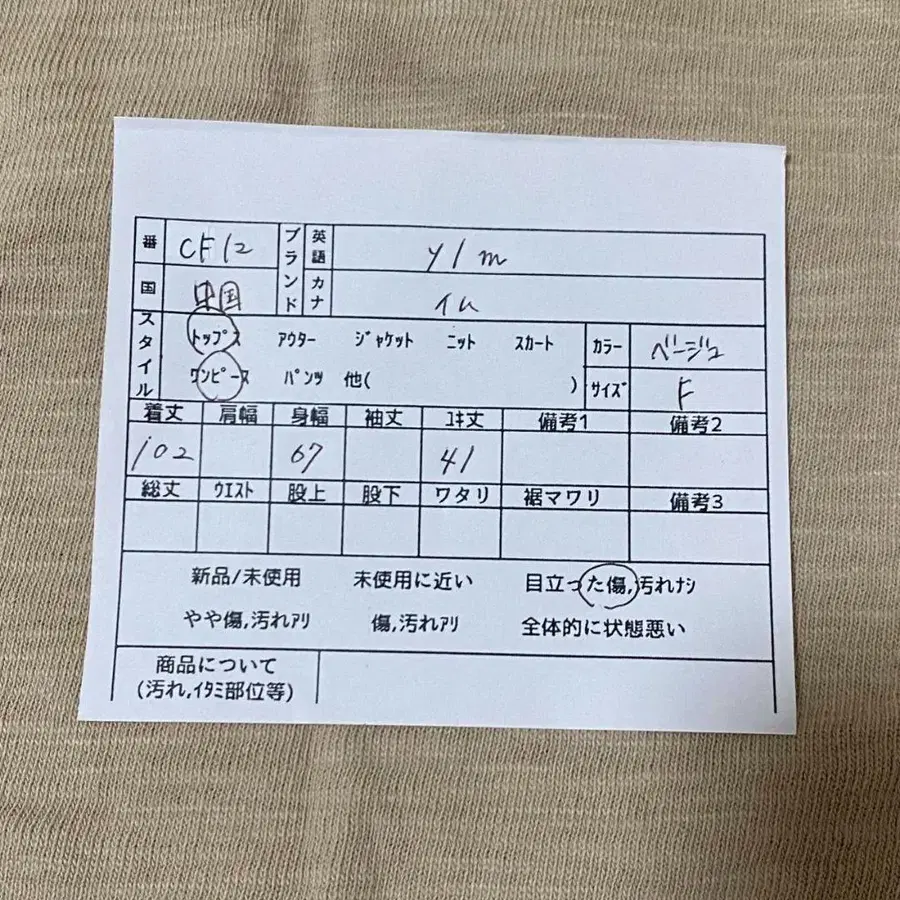 番 CF12 ブランド 英語 y/m
国 中国 カナ イム
スタイル トップス アウター ジャケット ニット スカート カラー ベージュ
ワンピース パンツ 他( ) サイズ F
着丈 肩幅 身幅 袖丈 ユキ丈 備考1 備考2
102 67 41
総丈 ウエスト 股上 股下 ワタリ 裾マワリ 備考3
新品/未使用 未使用に近い 目立った傷,汚れナシ
やや傷,汚れアリ 傷,汚れアリ 全体的に状態悪い
商品について
(汚れ,イタミ部位等)